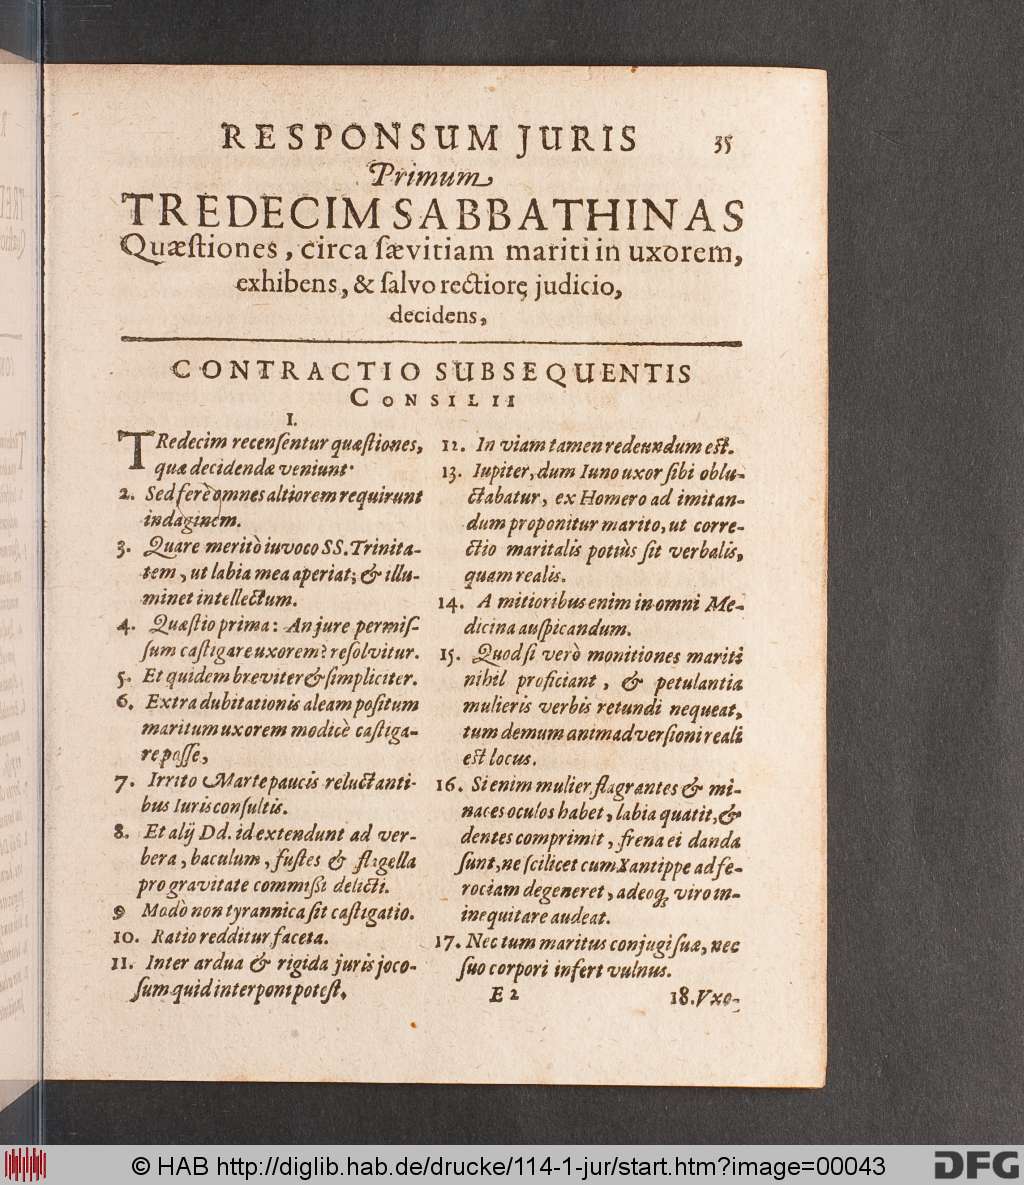 RESPONSUM JURIS 35
Primum
TREDECIM SABBATHINAS
Quæſtiones, circa ſævitiam mariti in uxorem,
exhibens, & ſalvo rectiorę judicio,
decidens,
CONTRACTIO SUBSEQUENTIS
CONSILII
I.
TRedecim recenſentur quæſtiones,
quæ decidendæ veniunt.
2. Sed ferè omnes altiorem requirunt
indaginem.
3. Quare meritò iuvoco SS. Trinita-
tem, ut labia mea aperiat; & illu-
minet intellectum.
4. Quæſtio prima: An jure permiſ-
ſum caſtigare uxorem? reſolvitur.
5. Et quidem breviter & ſimpliciter.
6. Extra dubitationis aleam poſitum
maritum uxorem modicè caſtiga-
re poſſe,
7. Irrito Marte paucis reluctanti-
bus Iurisconſultis.
8. Et alij Dd. id extendunt ad ver-
bera, baculum, fuſtes & flagella
pro gravitate commiſſi delicti.
9 Modò non tyrannica ſit caſtigatio.
10. Ratio redditur faceta.
11. Inter ardua & rigida juris joco-
ſum quid interponi poteſt.
12. In viam tamen redeundum eſt.
13. Iupiter, dum Iuno uxor ſibi oblu-
ctabatur, ex Homero ad imitan-
dum proponitur marito, ut corre-
ctio maritalis potiùs ſit verbalis,
quam realis.
14. A mitioribus enim in omni Me-
dicina auſpicandum.
15. Quod ſi verò monitiones mariti
nihil proficiant, & petulantia
mulieris verbis retundi nequeat,
tum demum animadverſioni reali
eſt locus.
16. Si enim mulier flagrantes & mi-
naces oculos habet, labia quatit, &
dentes comprimit, frena ei danda
ſunt, ne ſcilicet cum Xantippe ad fe-
rociam degeneret, adeoq; viro in-
inequitare audeat.
17. Nec tum maritus conjugi ſuæ, nec
ſuo corpori infert vulnus.
E 2 18. Vxo-
© HAB http://diglib.hab.de/drucke/114-1-jur/start.htm?image=00043
DFG